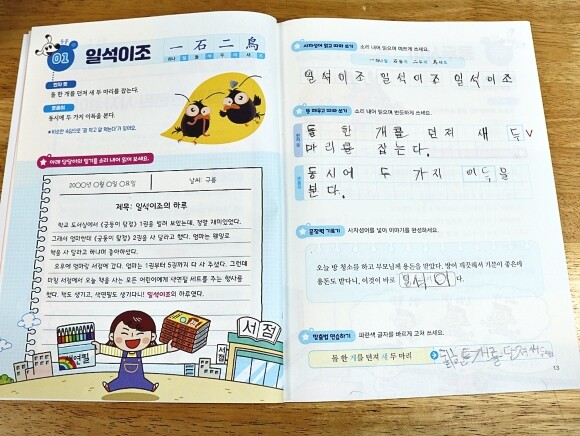 01
일석이조
一 石 二 鳥
하나 일 돌 석 두 이 새 조
돌 한 개를 던져 새 두 마리를 잡는다.
동시에 두 가지 이득을 본다.
아래 달달이의 일기를 소리 내어 읽어 보세요.
2000년 0월 0일 0요일
날씨: 구름
제목: 일석이조의 하루
학교 도서실에서 <궁둥이 탐정> 1권을 빌려 보았는데, 정말 재미있었다.
그래서 엄마한테 <궁둥이 탐정> 2권을 사 달라고 했다. 엄마는 웬일로
책을 사 달라고 하냐며 좋아하셨다.
오후에 엄마랑 서점에 갔다. 엄마는 1권부터 5권까지 다 사 주셨다. 그런데
마침 서점에서 오늘 책을 사는 모든 어린이에게 색연필 세트를 주는 행사를
했다. 책도 생기고, 색연필도 생기다니! 일석이조의 하루였다.
색연필
서점
사자성어 읽고 따라 쓰기 소리 내어 읽으며 예쁘게 쓰세요.
일석이조 일석이조 일석이조
뜻 채우고 따라 쓰기 소리 내어 읽으며 반듯하게 쓰세요.
돌 한 개를 던져 새 두
마리를 잡는다.
동시에 두 가지 이득을
본다.
문장력 기르기 사자성어를 넣어 이야기를 완성하세요.
오늘 방 청소를 하고 부모님께 용돈을 받았다. 방이 깨끗해서 기분이 좋은데
용돈도 받다니, 이것이 바로 일석이 다.
맞춤법 연습하기 파란색 글자를 바르게 고쳐 쓰세요.
돌 한 게를 던져 세 두 마리
13